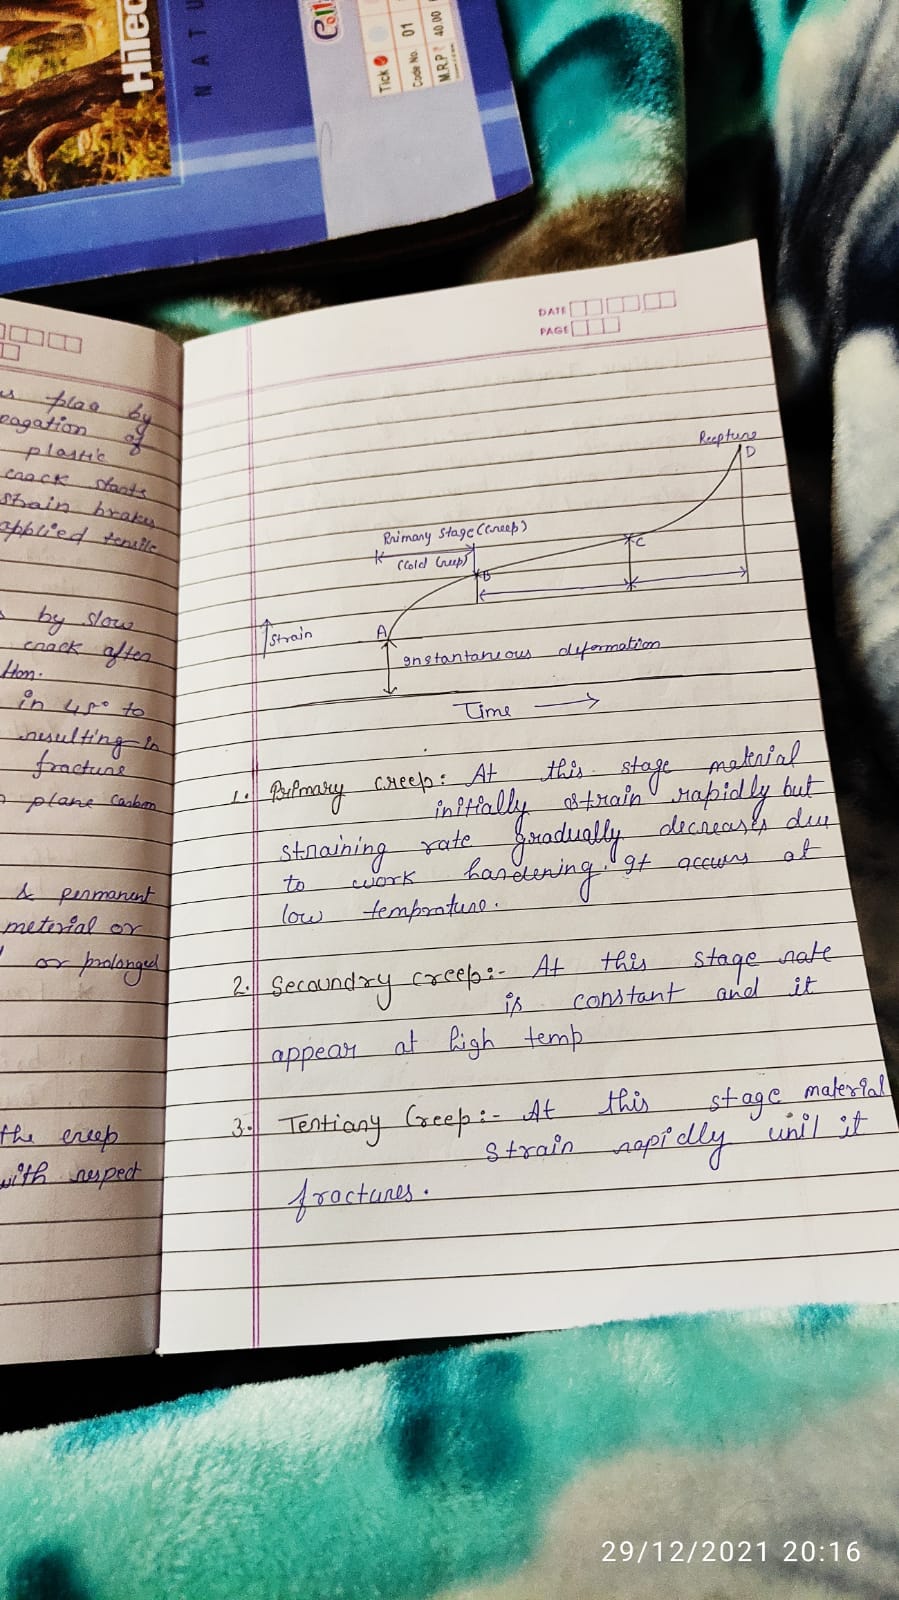 Hitec
N A T U
Coll
Tick
Code No. 01
M.R.P. ₹ 40.00
plao by
of
plastic
crack starts
strain brakes
applied tensile
by slow
crack after
tion.
in 45° to
resulting in
fracture
plane carbon
& permanent
meterial or
or prolonged
the creep
with respect
DATE
PAGE
Reepture
D
Primary Stage (Creep)
(Cold Creep)
B
C
A
↑ Strain
Instantaneous deformation
Time →
1. Primary Creep: At this stage material
initially strain rapidly but
straining rate gradually decreases due
to work hardening. It occurs at
low temprature.
2. Secoundry creep:- At this stage rate
is constant and it
appear at high temp
3. Tertiary Creep:- At this stage material
strain rapidly unil it
fractures.
29/12/2021 20:16